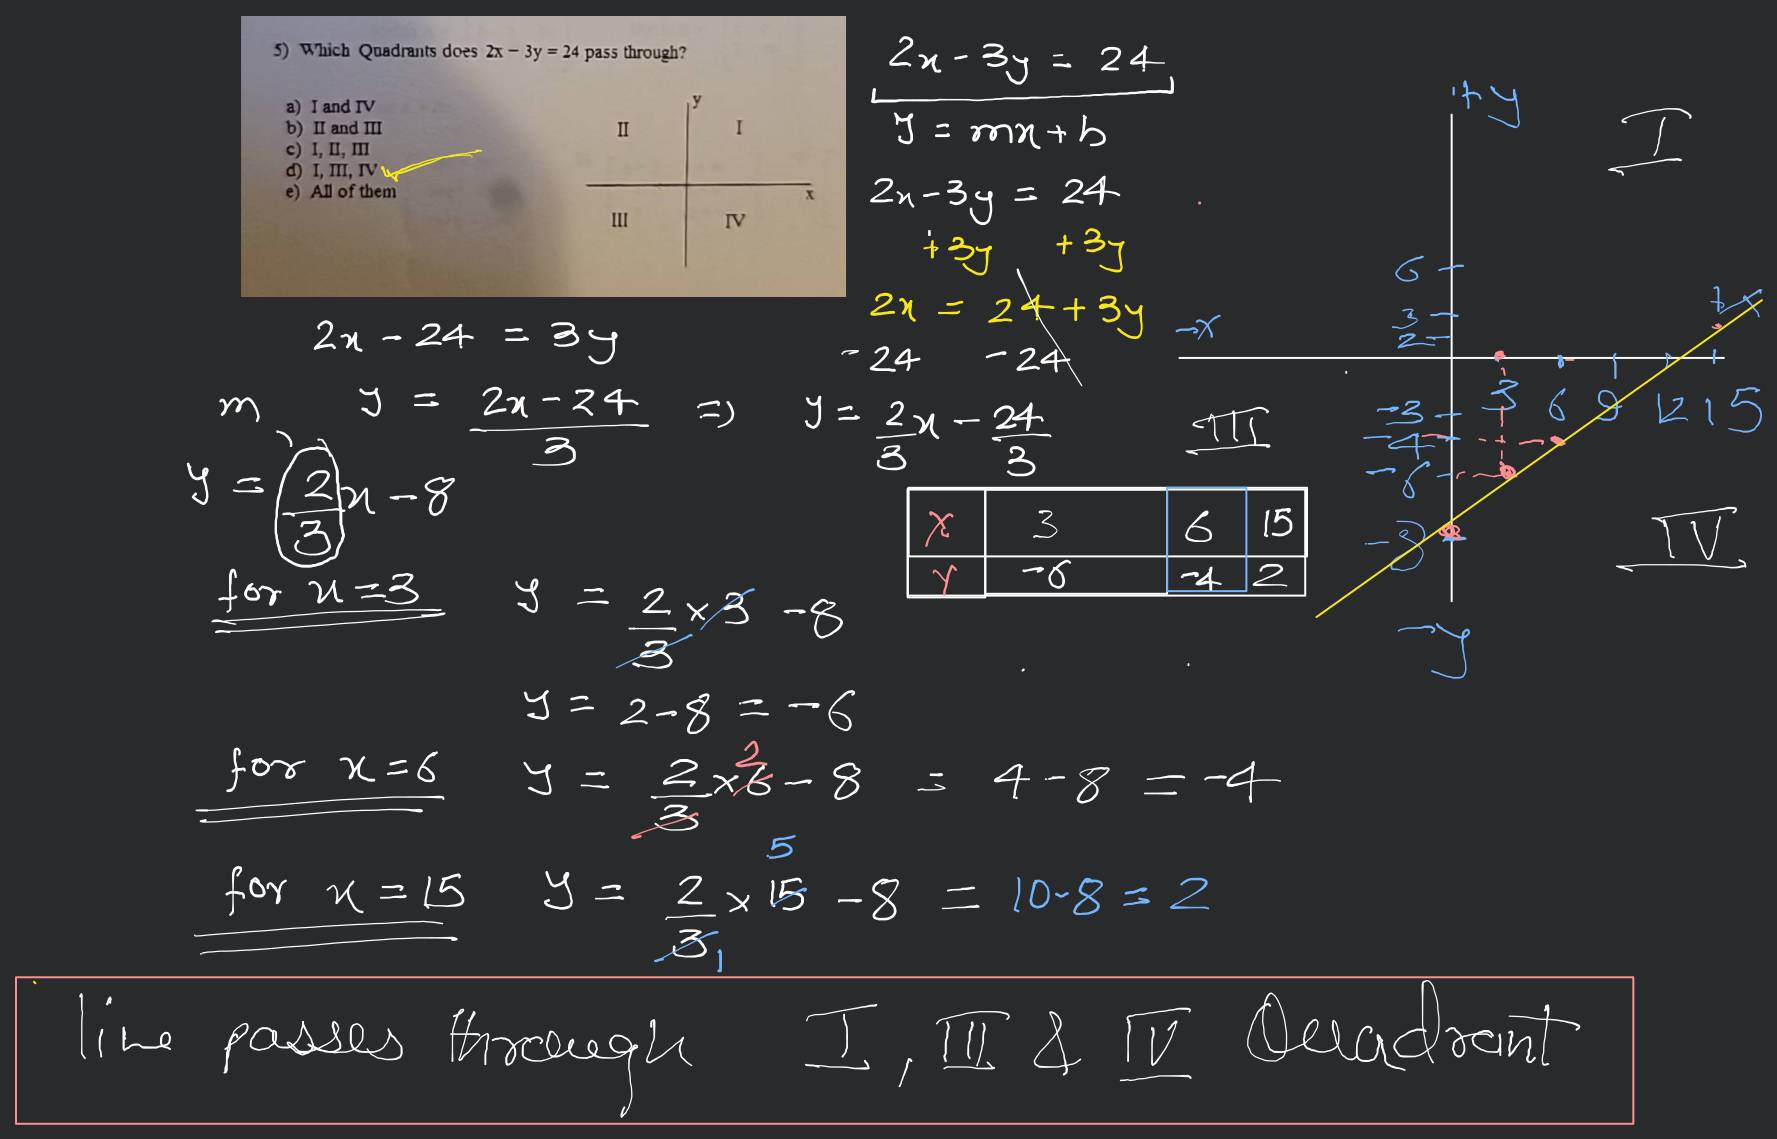 5) Which Quadrants does 2x – 3y = 24 pass through?
a) I and IV
b) II and III
c) I, II, III
d) I, III, IV
e) All of them
y
II
I
x
III
IV
2x - 3y = 24
y = mx + b
2x - 3y = 24
+3y +3y
2x = 24 + 3y
-24 -24
2x - 24 = 3y
m y = 2x - 24 / 3 => y = 2/3 x - 24/3
y = 2/3 x - 8
x 3 6 15
y -6 -4 2
for x = 3 y = 2/3 × 3 - 8
y = 2 - 8 = -6
for x = 6 y = 2/3 × 6 - 8 = 4 - 8 = -4
2
for x = 15 y = 2/3 × 15 - 8 = 10 - 8 = 2
5
1
+y
I
6
3
2
-x
+x
3 6 9 12 15
-3
-4
-6
III
IV
-y
line passes through I, III & IV Quadrant